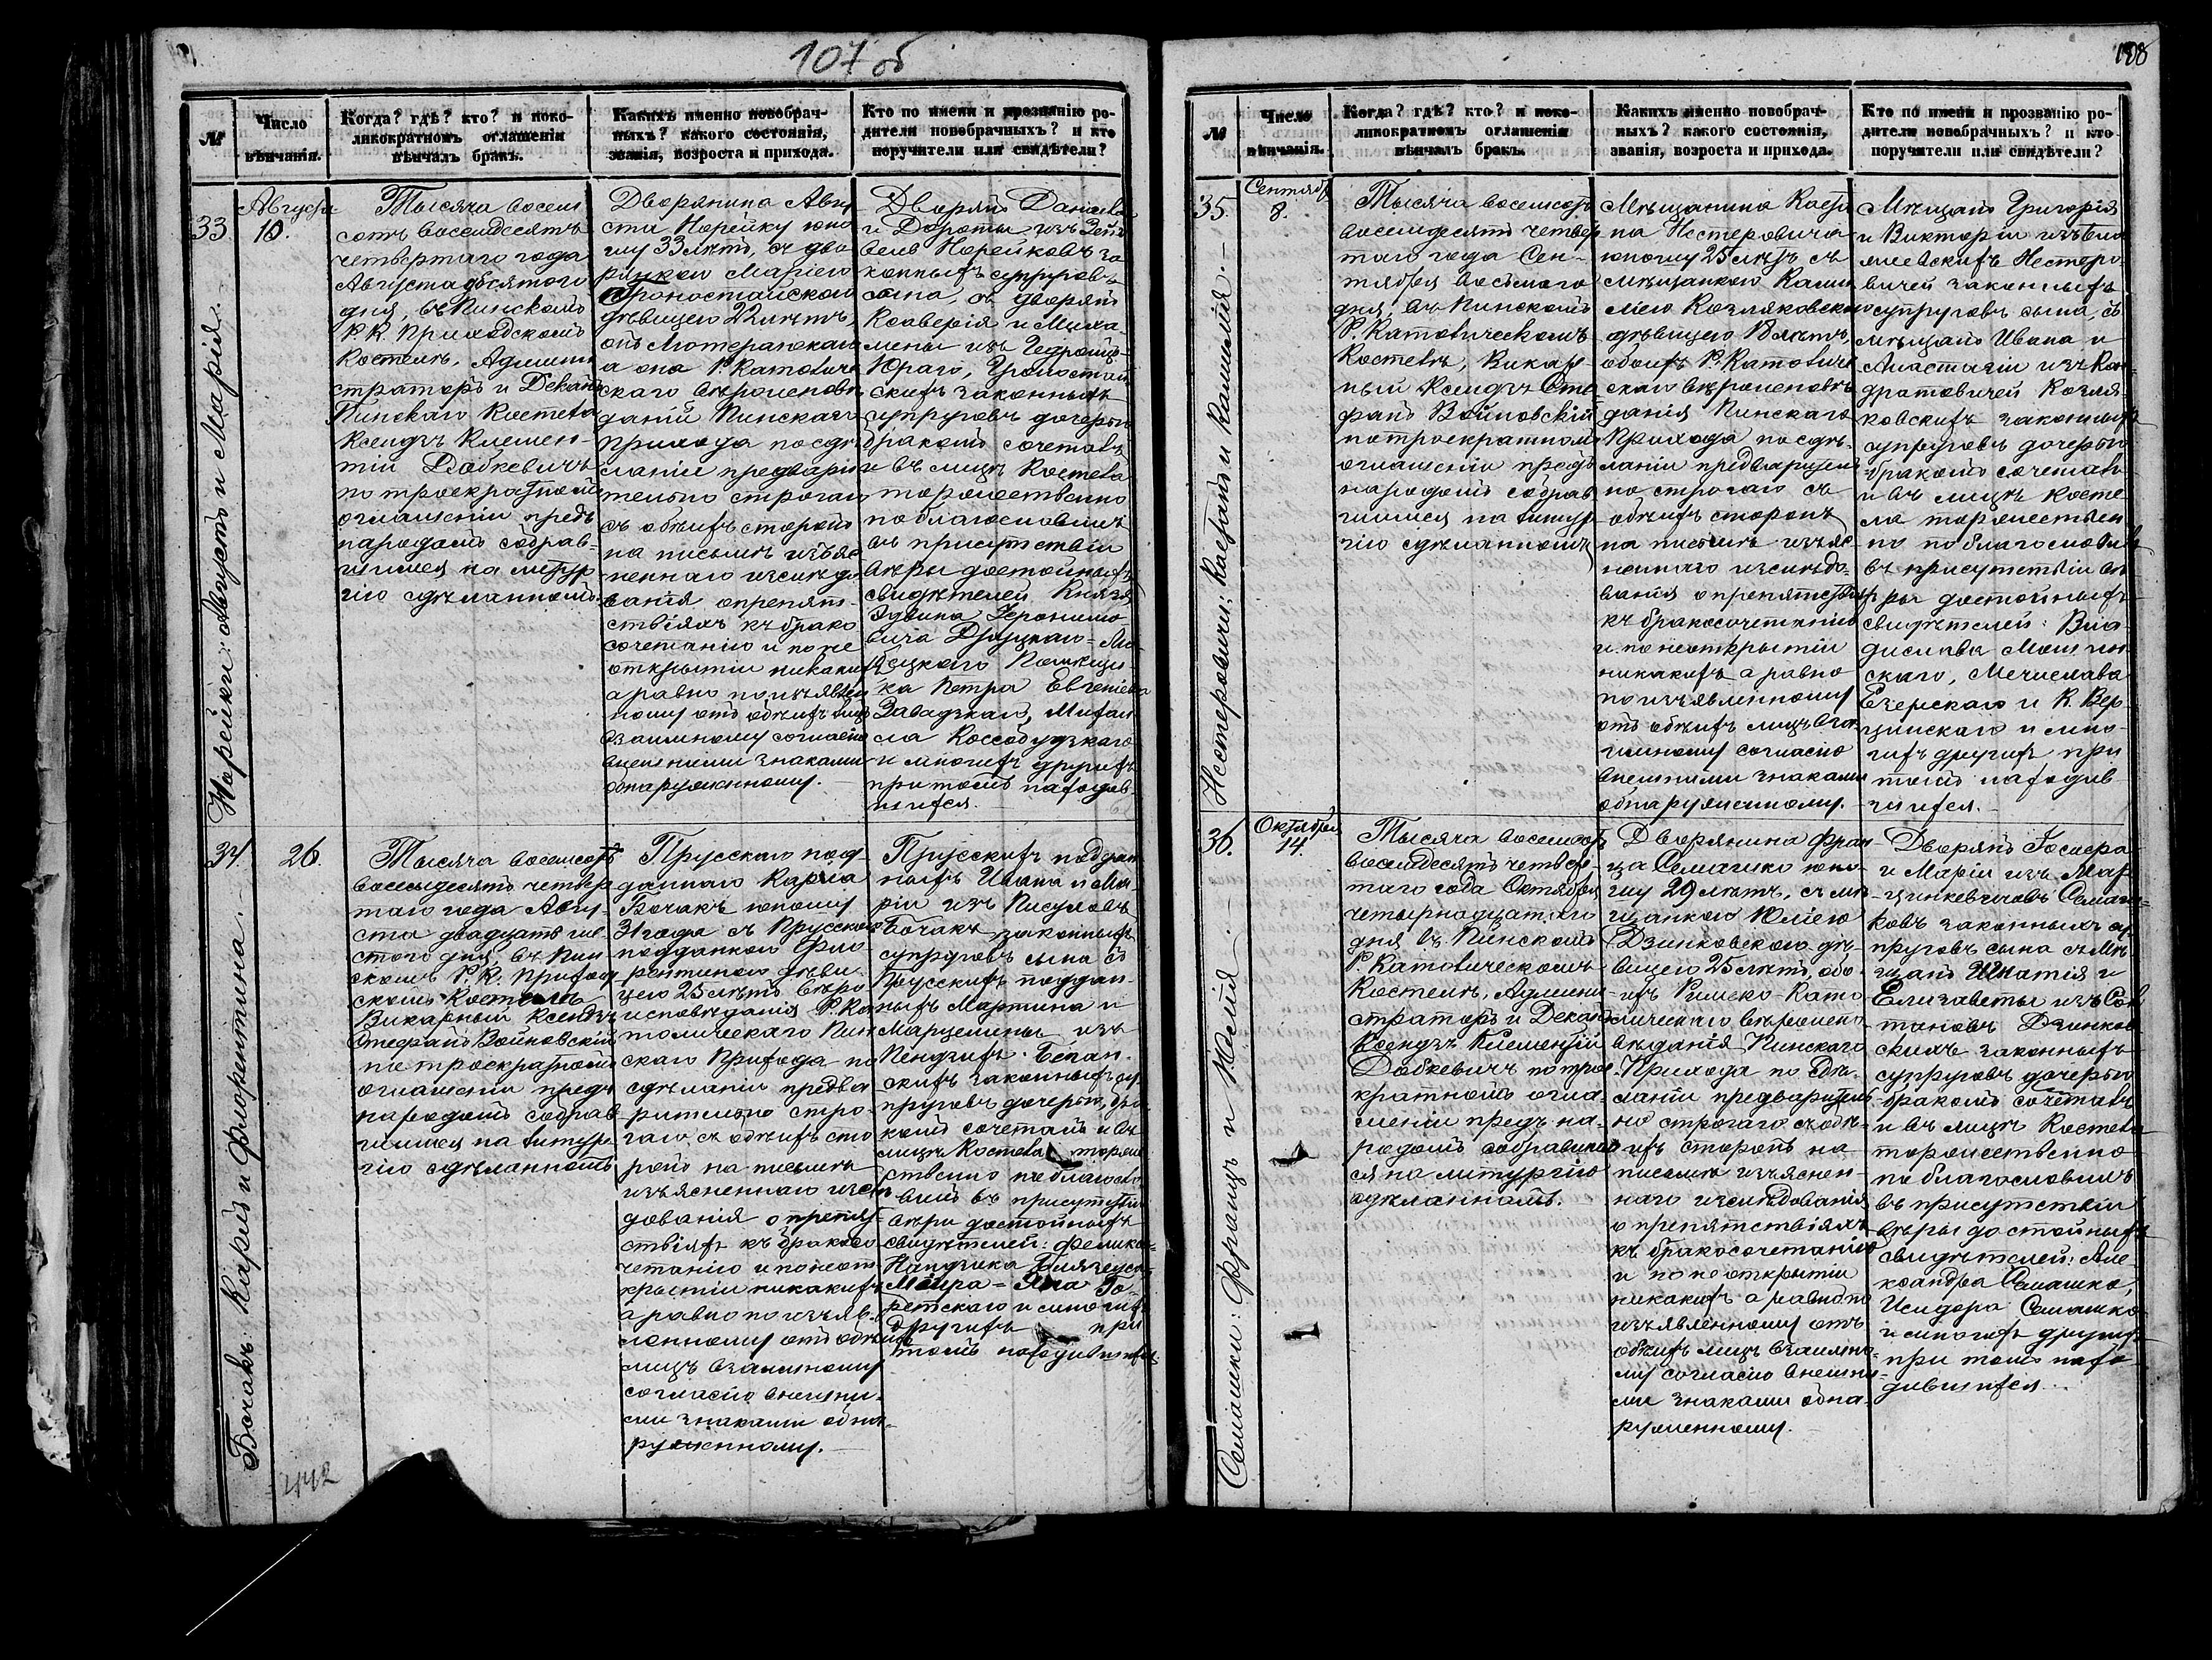 107 об
№
Число
вѣнчанія.
Когда? гдѣ? кто? и поко-
ликократномъ оглашеніи
вѣнчалъ бракъ.
Какихъ именно новобрач-
ныхъ? какого состоянія,
званія, возроста и прихода.
Кто по имени и прозванію ро-
дители новобрачныхъ? и кто
поручители или свидѣтели?
33.
Августа
10.
Норейки: Августъ и Марія.
Тысяча восем
сотъ восемдесятъ
четвертаго года
Августа десятого
дня, въ Пинскомъ
Р. К. Приходскомъ
Костелѣ, Админи
страторъ и Деканъ
Пинскаго Костела
Ксендзъ Клемен-
тій Дабкевичъ
по троекратномъ
оглашеніи предъ
народомъ собрав-
шимся на литур
гію сдѣланномъ.
Дворянина Авгу
ста Норейку юно
шу 33 лѣтъ, съ дво
рянкою Маріею
Гроностайскою
дѣвицею 22 лѣтъ,
онъ Лютеранскаго
а она Р. Католиче
скаго вѣроисповѣ
даній Пинскаго
прихода по сдѣ
ланіи предвари
тельно строгаго
съ обѣихъ сторонъ
на письмѣ изъяс
неннаго изслѣдо
ванія о препят-
ствіяхъ къ брако
сочетанію и по не
открытіи никакихъ
а равно по изъявлен
ному отъ обѣихъ лицъ
взаимному согласію
внешними знаками
обнаруженному.
Дворянъ Даніила
и Дороты изъ
Норейковъ за
конныхъ супруговъ
сына, съ дворянъ
Ксаверія и Миха-
лины изъ
Юраго, Гроностай
скихъ законныхъ
супруговъ дочерью
бракомъ сочеталъ
и въ лицѣ Костела
торжественно
поблагословилъ
въ присутствіи
вѣры достойныхъ
свидѣтелей Князя
Эдвина Іеронимо
вича Друцкаго-Лю
бецкого Помѣщи-
ка Петра Евгеніева
Завадзкаго, Михаи
ла Коссобудзкаго
и многихъ другихъ
при томъ находив
шихся.
34.
26.
Бочакъ: Карлъ и Флорентина.
Тысяча восемсотъ
восемдесятъ четвер
таго года Авгу-
ста двадцать ше-
стого дня, въ Пин
скомъ Р. К. Приход
скомъ Костелѣ
Викарный Ксендзъ
Стефанъ Войновскій
по троекратномъ
оглашеніи предъ
народомъ собрав
шимся на литур
гію сдѣланномъ
Прусскаго под-
даннаго Карла
Бочакъ юношу
31 года съ Прусскою
подданкою Фло
рентиною дѣви-
цею 25 лѣтъ вѣро
исповѣданія Р. Ка
толическаго Пин
скаго Прихода по
сдѣланіи предва
рительно стро-
гаго съ обѣихъ сто
ронъ на письмѣ
изъясненнаго изслѣ
дованія о препят-
ствіяхъ къ брако
четанію и по неот
крытіи никакихъ
а равно по изъяв-
ленному отъ обѣихъ
лицъ взаимному
согласію внешни-
ми знаками обна-
руженному.
Прусскихъ поддан
ныхъ Ивана и Ма-
ріи изъ
Бочакъ законныхъ
супруговъ сына съ
Прусскихъ поддан-
ныхъ Мартина и
Марцелины изъ
скихъ законныхъ су-
пруговъ дочерью, бра
комъ сочеталъ и въ
лицѣ Костела торже
ственно поблагосло-
вилъ въ присутствіи
вѣры достойныхъ
свидѣтелей: Феликса
и многихъ
другихъ при
томъ находившихся.
442
108
№
Число
вѣнчанія.
Когда? гдѣ? кто? и поко-
ликократномъ оглашеніи
вѣнчалъ бракъ.
Какихъ именно новобрач-
ныхъ? какого состоянія,
званія, возроста и прихода.
Кто по имени и прозванію ро-
дители новобрачныхъ? и кто
поручители или свидѣтели?
35.
Сентябр
8.
Нестеровичи: Каетанъ и Камилія.
Тысяча восемсотъ
восемдесятъ четвер
таго года Сен-
тября восьмого
дня, въ Пинскомъ
Р. Католическомъ
Костелѣ, Викар-
ный Ксендзъ Сте
фанъ Войновскій
по троекратномъ
оглашеніи предъ
народомъ собрав
шимся на литур
гію сдѣланномъ
Мѣщанина Каета
на Нестеровича
юношу 25 лѣтъ съ
мѣщанкою Ками
ліею Козляковскою
дѣвицею лѣтъ,
обоихъ Р. Католиче
скаго вѣроисповѣ
данія Пинскаго
Прихода по сдѣ-
ланіи предваритель
но строгаго съ
обѣихъ сторонъ
на письмѣ изъяс
неннаго изслѣдо-
ванія о препятствіяхъ
къ бракосочетанію
и по неоткрытіи
никакихъ а равно
по изъявленному
отъ обѣихъ лицъ вза
имному согласію
внешними знаками
обнаруженному.
Мѣщанъ Григорія
и Викторіи изъ
Нестеро
вичей законныхъ
супруговъ сына, съ
мѣщанъ Ивана и
Анастазіи изъ Кон
дратовичей Козля
ковскихъ законныхъ
супруговъ дочерью
бракомъ сочеталъ
и въ лицѣ Косте
ла торжествен
но поблагословилъ
въ присутствіи вѣ
ры достойныхъ
свидѣтелей: Вла
дислава Мошин
скаго, Мечислава
Езерскаго и К. Вер
цинскаго и мно-
гихъ другихъ при
томъ находив
шихся.
36.
Октября
14.
Семашки: Францъ и Юлія.
Тысяча восемсотъ
восемдесятъ четвер-
таго года Октября
четырнадцатаго
дня въ Пинскомъ
Р. Католическомъ
Костелѣ, Админи
страторъ и Деканъ
Ксендзъ Клементій
Дабкевичъ по трое
кратномъ огла-
шеніи предъ на-
родомъ собравшим
ся на литургію
сдѣланномъ.
Дворянина Фран
ца Семашко юно-
шу 29 лѣтъ, съ мѣ
щанкою Юліею
Дзинковскою дѣ-
вицею 25 лѣтъ, обо
ихъ Римско-Като
лическаго вѣроиспо
вѣданія Пинскаго
Прихода по сдѣ-
ланіи предваритель
но строгаго съ обѣ-
ихъ сторонъ на
письмѣ изъяснен-
наго изслѣдованія
о препятствіяхъ
къ бракосочетанію
и по не открытіи
никакихъ а равно по
изъявленному отъ
обѣихъ лицъ взаимно-
му согласію внешни-
ми знаками обна-
руженному.
Дворянъ
и Маріи изъ Мар
цинкевичовъ Семаш-
ковъ законныхъ су
пруговъ сына съ Мѣ
щанъ Игнатія и
Елизаветы изъ
Дзинков
скихъ законныхъ
супруговъ дочерью
бракомъ сочеталъ
и въ лицѣ Костела
торжественно
поблагословилъ
въ присутствіи
вѣры достойныхъ
свидѣтелей: Але-
ксандра Семашко,
Исидора Семашко
и многихъ другихъ
при томъ нахо-
дившихся.